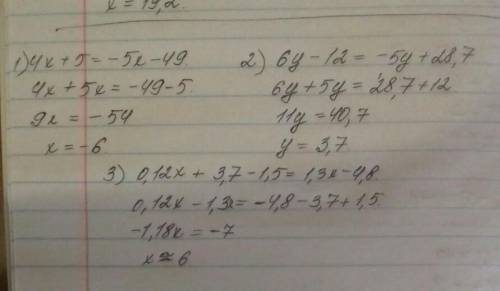 x = 19,2.
1) 4x + 5 = -5x - 49.
4x + 5x = -49 - 5.
9x = -54
x = -6
2) 6y - 12 = -5y + 28,7
6y + 5y = 28,7 + 12
11y = 40,7
y = 3,7
3) 0,12x + 3,7 - 1,5 = 1,3x - 4,8
0,12x - 1,3x = -4,8 - 3,7 + 1,5.
-1,18x = -7
x ≈ 6